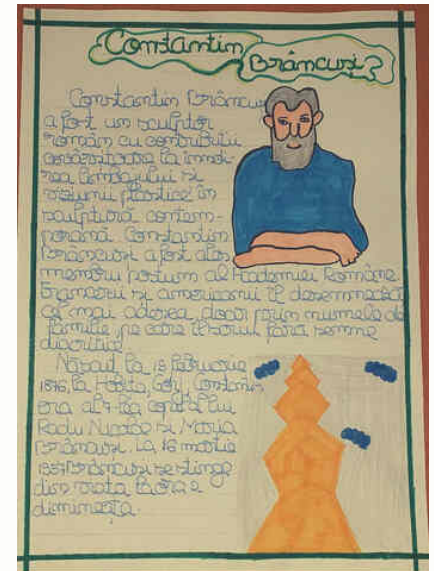 Constantin
Brâncuși?
Constantin Brâncuși
a fost un sculptor
român cu contribuții
covârșitoare la înnoi-
rea limbajului și
viziunii plastice în
sculptura contem-
porană. Constantin
Brâncuși a fost ales
membru postum al Academiei Române.
Francezii și americanii îl desemnează
cel mai adesea, doar prin numele de
familie, pe care îl scriu fără semne
diacritice.
Născut la 19 februarie
1876, la Hobița, Gorj, Constantin
era al 7-lea copil al lui
Radu Nicolae și Maria
Brâncuși. La 16 martie
1957 Brâncuși se stinge
din viață la ora 2
dimineața.